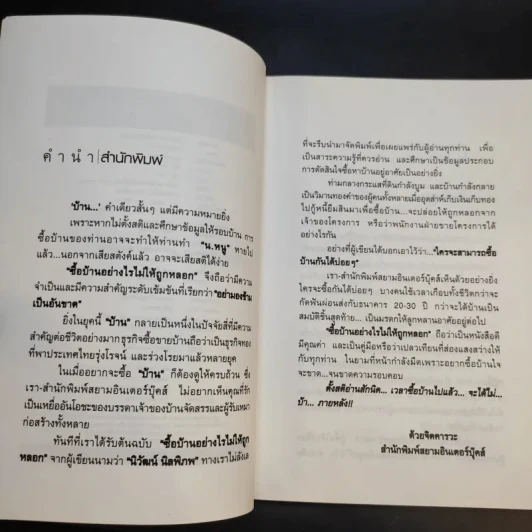 คำนำ|สำนักพิมพ์
'บ้าน...' คำเดียวสั้นๆ แต่มีความหมายยิ่ง
เพราะหากไม่ตั้งสติและศึกษาข้อมูลให้รอบบ้าน การ
ซื้อบ้านของท่านอาจจะทำให้ท่านทำ "น.หนู" หายไป
แล้ว...นอกจากเสียสตังค์แล้ว อาจจะเสียสติได้ง่าย
"ซื้อบ้านอย่างไรไม่ให้ถูกหลอก" จึงถือว่ามีความ
จำเป็นและมีความสำคัญระดับเข้มข้นที่เรียกว่า "อย่ามองข้าม
เป็นอันขาด"
ยิ่งในยุคนี้ "บ้าน" กลายเป็นหนึ่งในปัจจัยสี่ที่มีความ
สำคัญต่อชีวิตอย่างมากธุรกิจซื้อขายบ้านถือเป็นธุรกิจทอง
ที่พาประเทศไทยรุ่งโรจน์ และร่วงโรยมาแล้วหลายยุค
ในเมื่ออยากจะซื้อ "บ้าน" ก็ต้องดูให้ครบถ้วน ซึ่ง
เรา-สำนักพิมพ์สยามอินเตอร์บุ๊คส์ ไม่อยากเห็นคุณที่รัก
เป็นเหยื่ออันโอชะของบรรดาเจ้าของบ้านจัดสรรและผู้รับเหมา
ก่อสร้างทั้งหลาย
ทันทีที่เราได้รับต้นฉบับ "ซื้อบ้านอย่างไรไม่ให้ถูก
หลอก" จากผู้เขียนนามว่า "นิวัฒน์ นิลพิภพ" ทางเราไม่ลังเล
ที่จะรีบนำมาจัดพิมพ์เพื่อเผยแพร่กับผู้อ่านทุกท่าน เพื่อ
เป็นสาระความรู้ที่ควรอ่าน และศึกษาเป็นข้อมูลประกอบ
การตัดสินใจซื้อหาบ้านอยู่อาศัยเป็นอย่างยิ่ง
ท่ามกลางกระแสที่ดินกำลังบูม และบ้านกำลังกลาย
เป็นวิมานทองคำของผู้คนทั้งหลายเมื่ออุตส่าห์เก็บเงินเก็บทอง
ไปกู้หนี้ยืมสินมาเพื่อซื้อบ้าน...จะปล่อยให้ถูกหลอกจาก
เจ้าของโครงการ หรือว่าพนักงานฝ่ายขายโครงการได้
อย่างไรกัน
อย่างที่ผู้เขียนได้บอกเอาไว้ว่า..."ใครจะสามารถซื้อ
บ้านกันได้บ่อยๆ"
เรา-สำนักพิมพ์สยามอินเตอร์บุ๊คส์เห็นด้วยอย่างยิ่ง
ใครจะซื้อกันได้บ่อยๆ บางคนใช้เวลาเกือบทั้งชีวิตกว่าจะ
กัดฟันผ่อนส่งกับธนาคาร 20-30 ปี กว่าจะได้บ้านเป็น
สมบัติชิ้นสุดท้าย...เป็นมรดกให้ลูกหลานอาศัยอยู่ต่อไป
"ซื้อบ้านอย่างไรไม่ให้ถูกหลอก" ถือว่าเป็นหนังสือดี
มีคุณค่า และเป็นคู่มือหรือว่าเปลวเทียนที่ส่องแสงสว่างให้
กับทุกท่าน ในยามที่หน้ากำลังมืดเพราะอยากซื้อบ้านใจ
จะขาด...จนขาดความรอบคอบ
ตั้งสติอ่านสักนิด... เวลาซื้อบ้านไปแล้ว... จะได้ไม่...
บ้า... ภายหลัง!!
ด้วยจิตคารวะ
สำนักพิมพ์สยามอินเตอร์บุ๊คส์